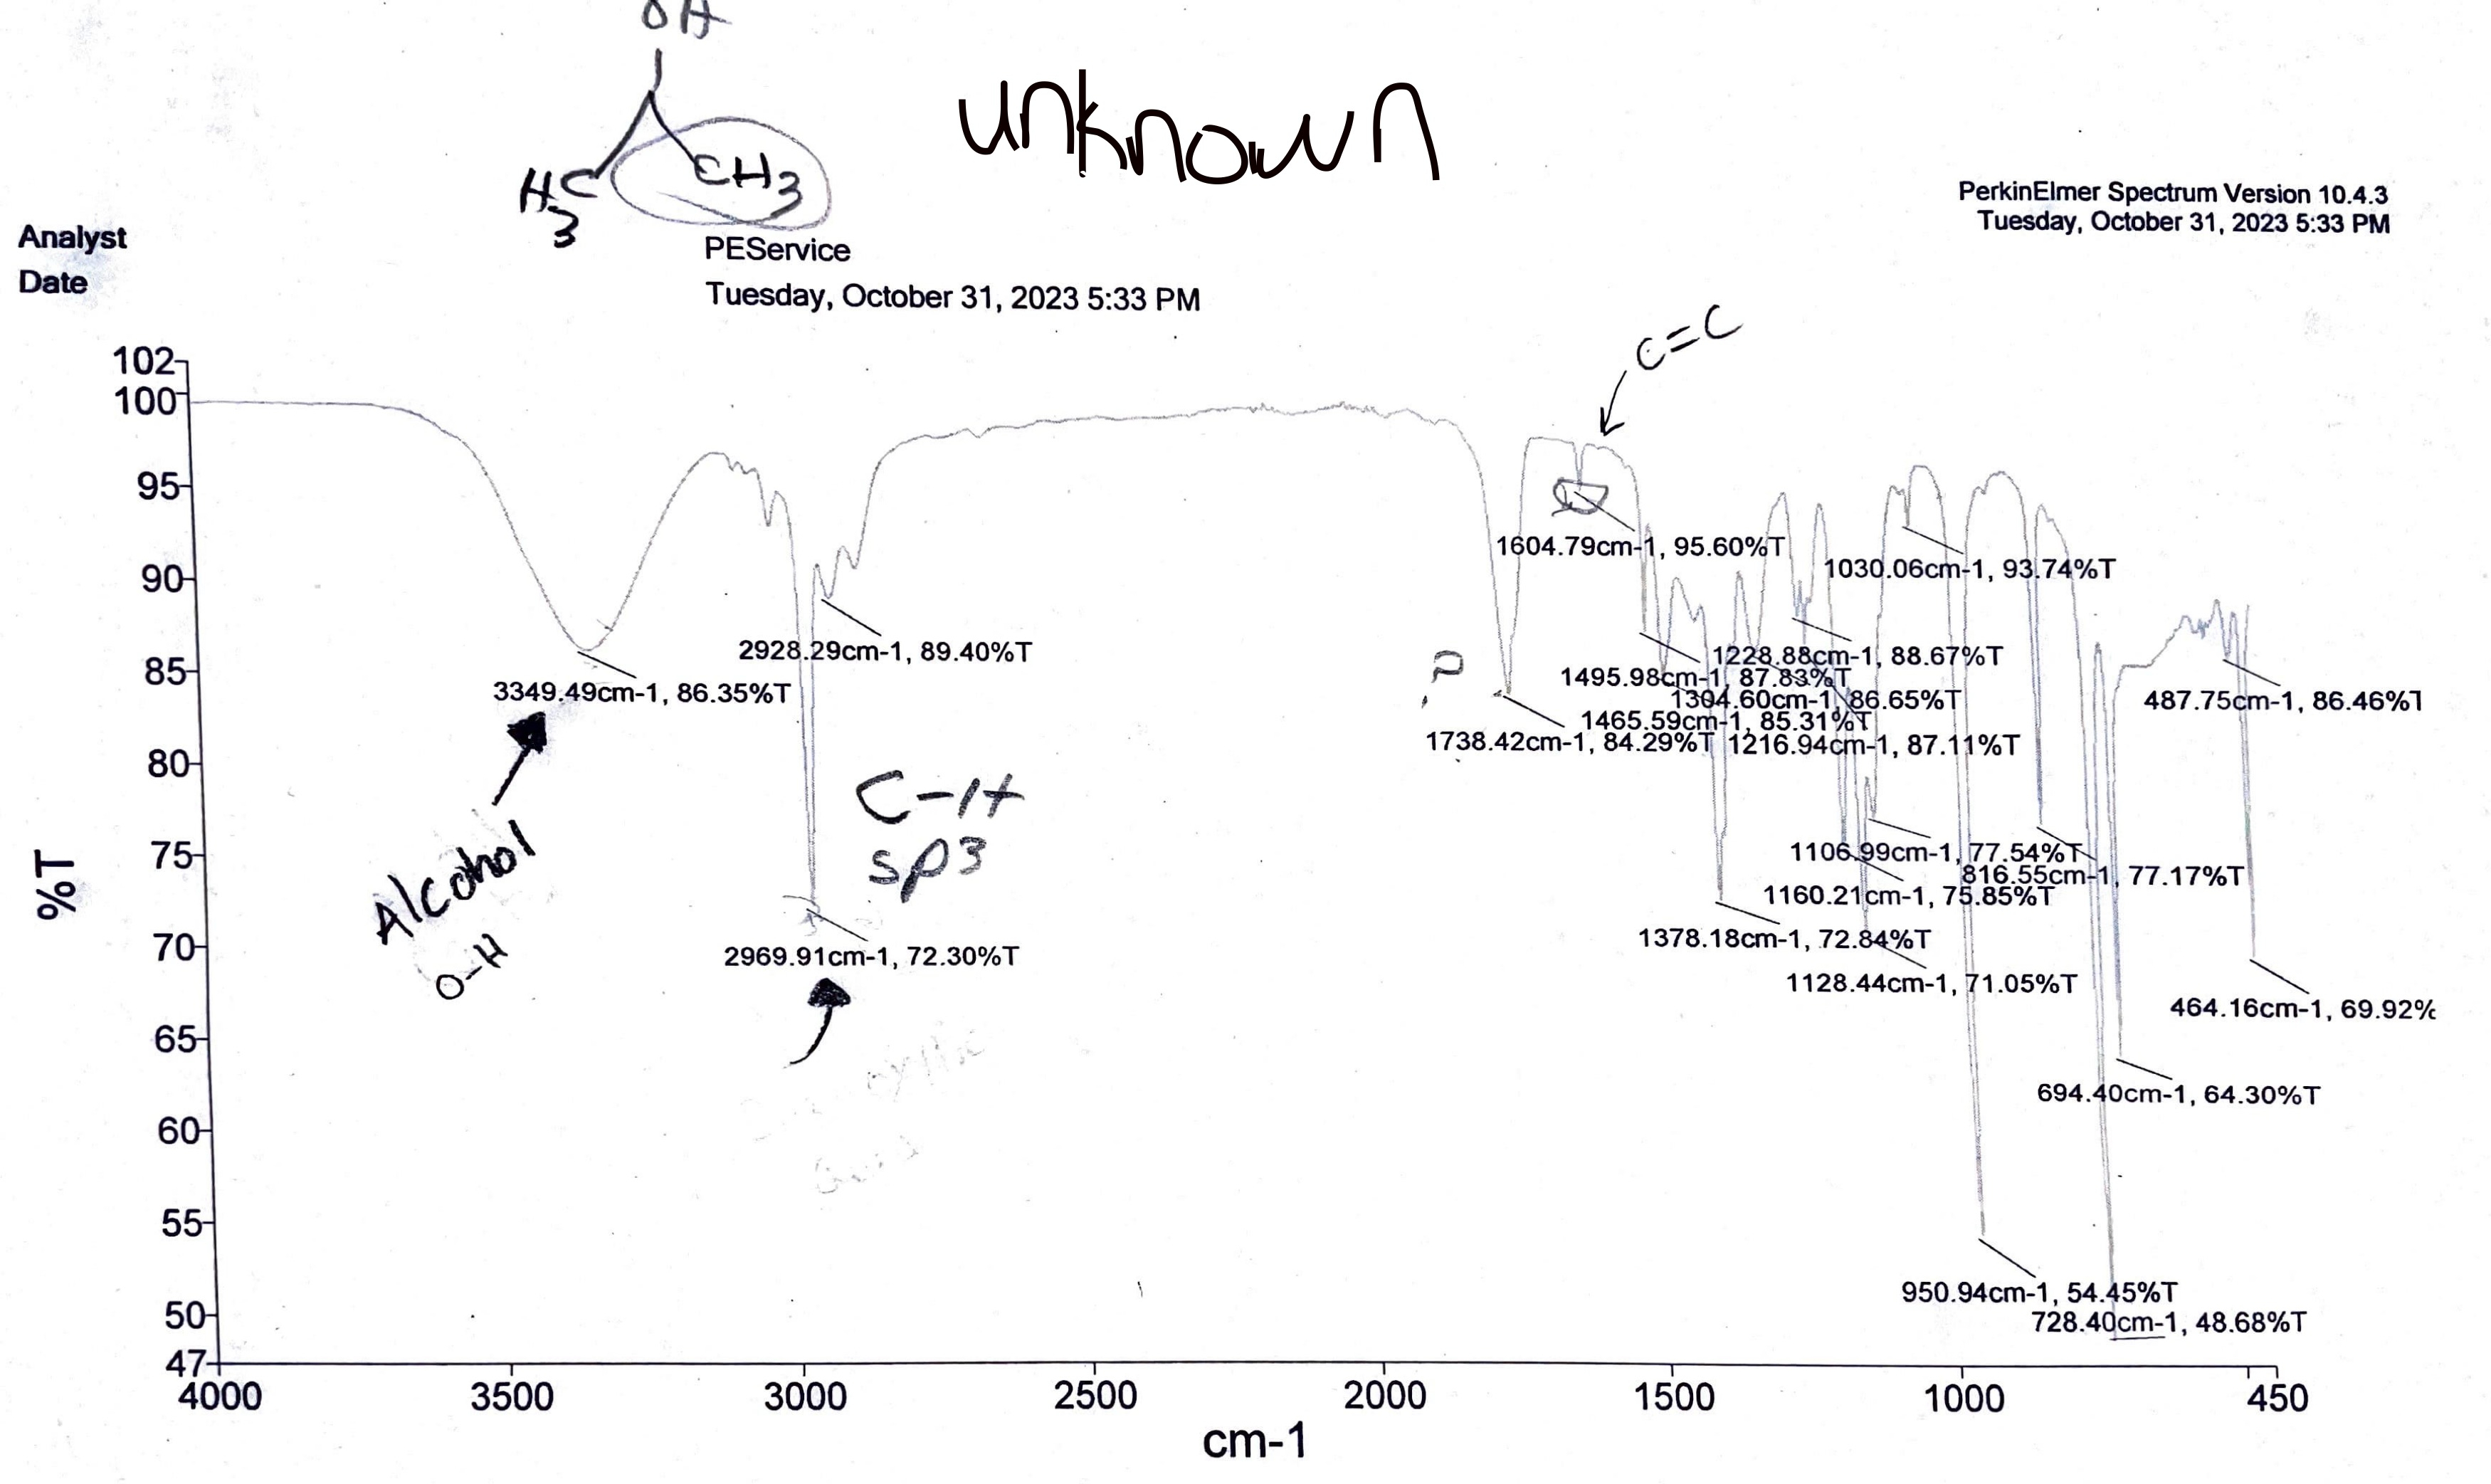 OH
unknown
H3C
CH3
PerkinElmer Spectrum Version 10.4.3
Tuesday, October 31, 2023 5:33 PM
Analyst
PEService
Date
Tuesday, October 31, 2023 5:33 PM
C=C
102
100
95
90
85
80
75
70
65
60
55
50
47
%T
1604.79cm-1, 95.60%T
1030.06cm-1, 93.74%T
2928.29cm-1, 89.40%T
1228.88cm-1, 88.67%T
?
1495.98cm-1, 87.83%T
3349.49cm-1, 86.35%T
1304.60cm-1, 86.65%T
487.75cm-1, 86.46%T
1465.59cm-1, 85.31%T
1738.42cm-1, 84.29%T
1216.94cm-1, 87.11%T
C-H
sp3
Alcohol
O-H
1106.99cm-1, 77.54%T
816.55cm-1, 77.17%T
1160.21cm-1, 75.85%T
1378.18cm-1, 72.84%T
2969.91cm-1, 72.30%T
1128.44cm-1, 71.05%T
464.16cm-1, 69.92%
694.40cm-1, 64.30%T
950.94cm-1, 54.45%T
728.40cm-1, 48.68%T
4000 3500 3000 2500 2000 1500 1000 450
cm-1